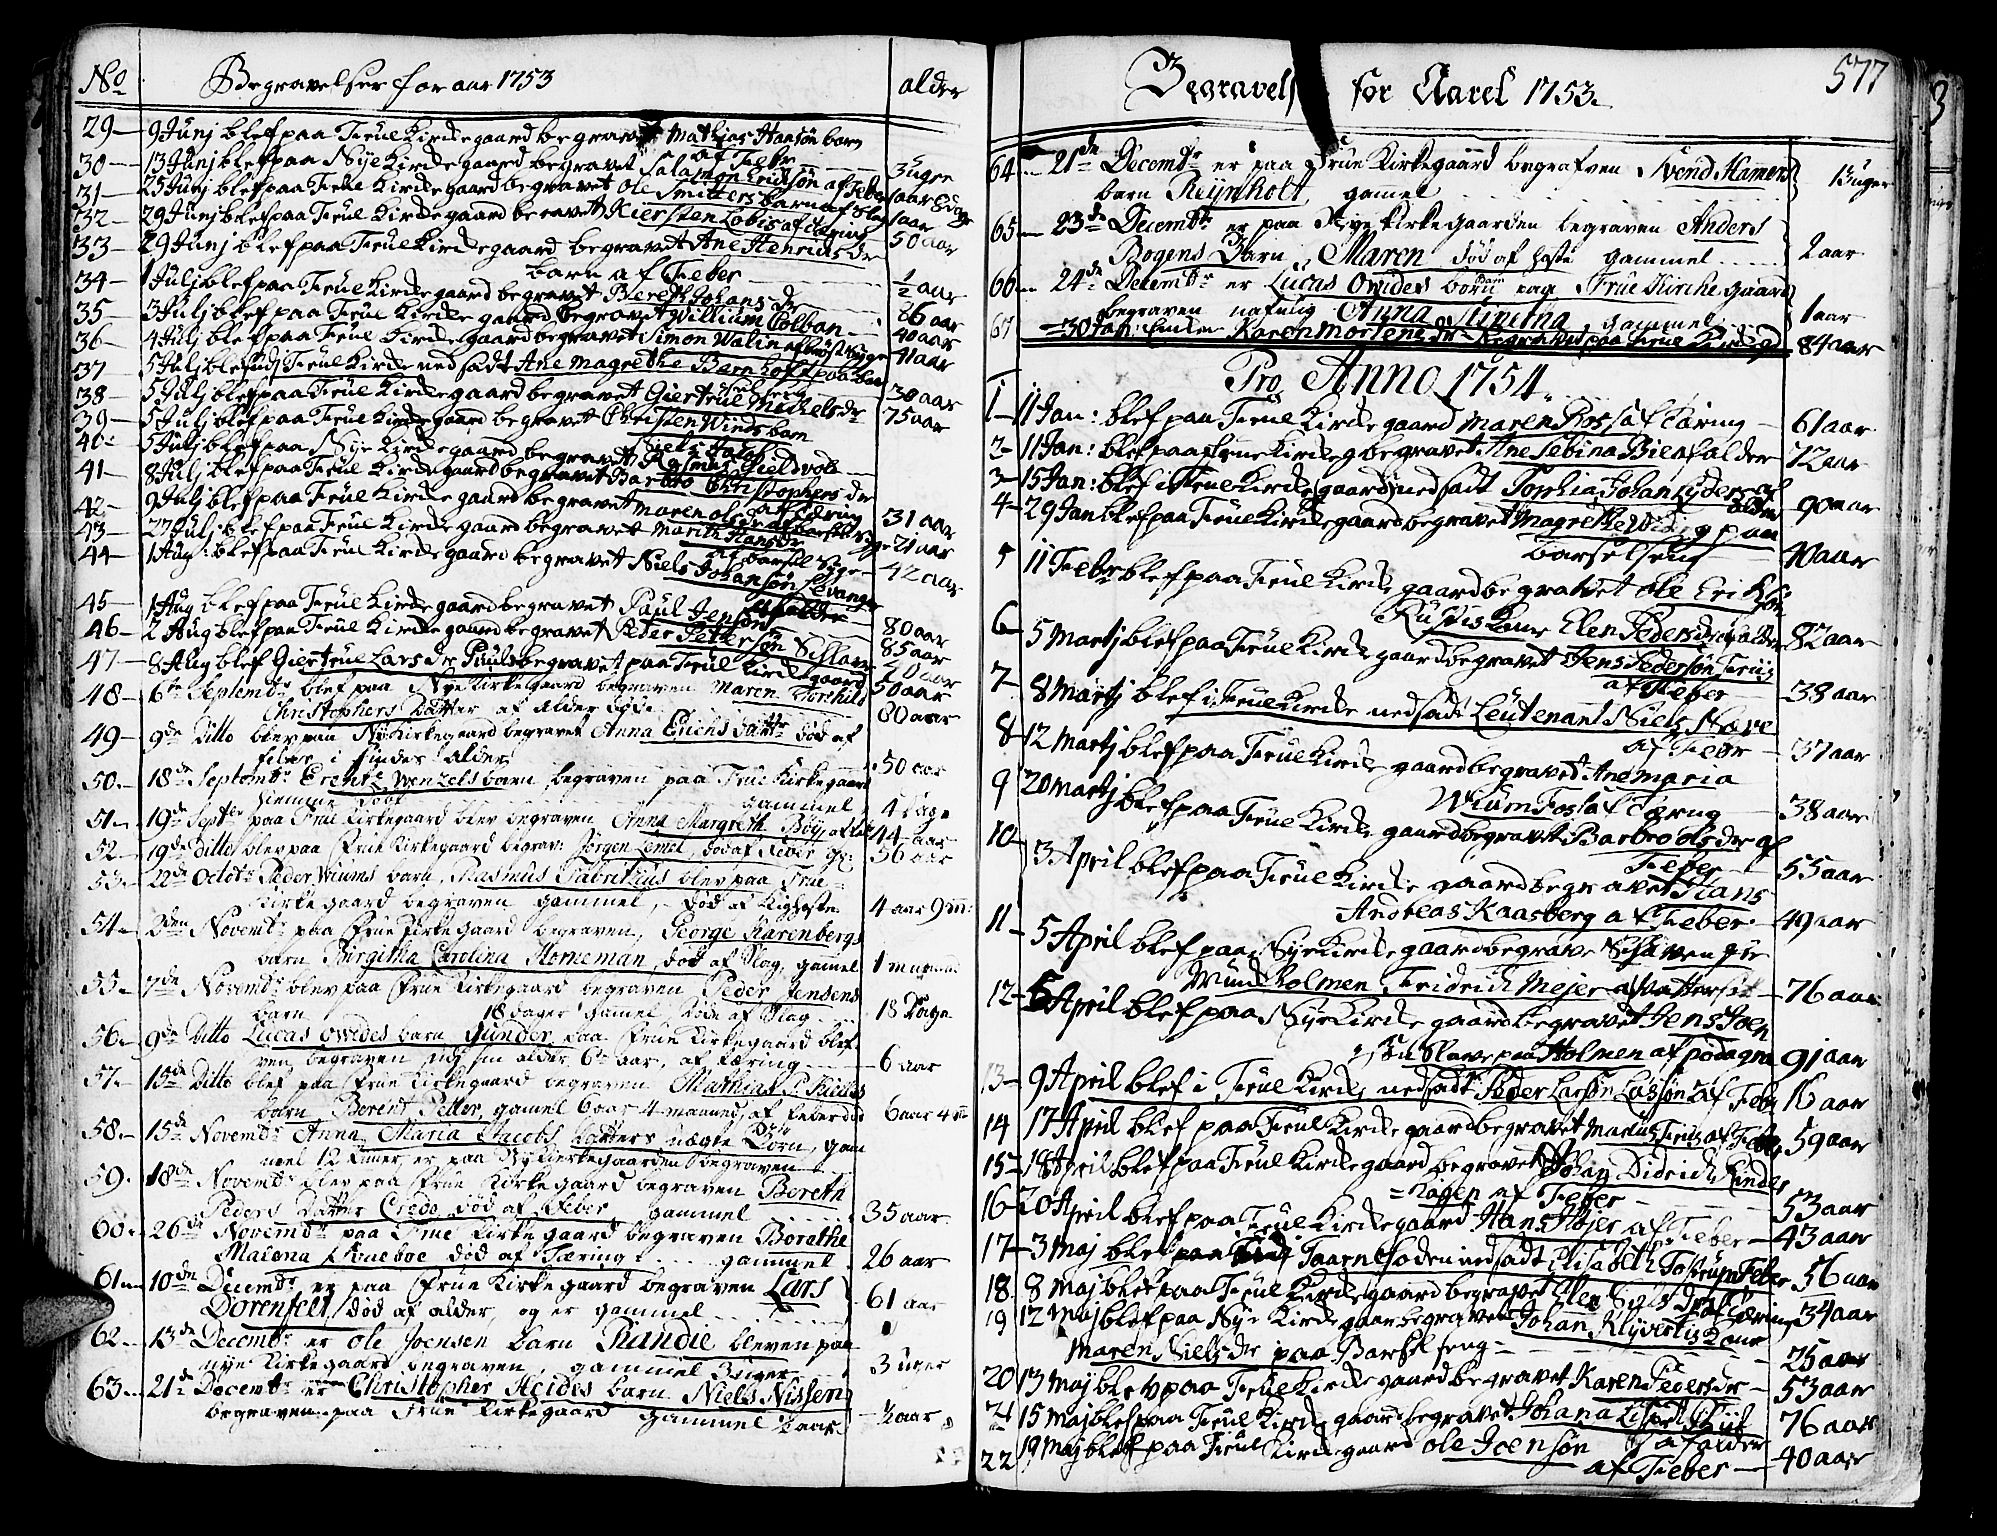 No Begravelser for aar 1753 alder
29 9 Junj blef paa Frue Kirckegaard begravet Mathias Hansøn barn
af Feber 3 uger
30 13 Junj blef paa Nye Kirckegaard begravet Salamon Erichsøn af Feber
31 25 Junj blef paa Frue Kirckegaard begravet Ole Smitters barn af slag 1 aar
32 29 Junj blef paa Frue Kirckegaard begravet Kiersten Lobis af 50 aar
33 29 Junj blef paa Frue Kirckegaard begravet Ane Henrichs dr
barn af Feber ½ aar
34 1 Julj blef paa Frue Kirckegaard begravet Bereth Johans dr 86 aar
35 3 Julj blef paa Frue Kircke gaard begravet Willium Colban 40 aar
36 4 Julj blef paa Frue Kirckegaard begravet Simon Walin af brøst syge 41 aar
37 5 Julj blef udj Frue Kircke nedsadt Ane Magrethe Bernhoft paa bar
sel seng 30 aar
38 5 Julj blef paa Frue Kircke gaard begravet Giertrue Michels dr 75 aar
39 5 Julj blef paa Frue Kircke gaard begravet Christen Winds barn
40 5 Julj blef paa Nye Kircke gaard begravet Niels Jacob
41 8 Julj blef paa Frue Kirckegaard begravet Barbro Christophers dr
af Tæring 31 aar
42 9 Julj blef paa Frue Kircke gaard begravet Maren Ols dr af barsel syge 21 aar
43 27 Julj blef paa Frue Kircke gaard begravet Marith Hans dr
af barsel syge 42 aar
44 1 Aug: blef paa Frue Kircke gaard begravet Niels Johansøn
af alder 80 aar
45 1 Aug blef paa Frue Kircke gaard begravet Paul Jensøn 85 aar
46 2 Aug blef paa Frue Kircke gaard begravet Peter Pettersøn 40 aar
47 8 Aug blef Giertrue Lars dr Pauls begravet paa Frue Kirckegaard 50 aar
48 6te Septembr blef paa Nye Kirkegaard begraven Maren Torkild
Christophers Datter af alder døde 80 aar
49 9de Ditto blev paa Ny Kirkegaard begravet Anna Erichs dattr død af
feber i hendes alder 50 aar
50 18de Septembr Erent Wenzels barn begraven paa Frue Kirkegaard
hiemme døbt gammel 4 Dage
51 19de Septbr paa Frue Kirkegaard blev begraven Anna Margreth Böy 44 aar
52 19de Ditto blev paa Frue Kirkegaard begrav: Jørgen Lemel, død af Feber gl: 56 aar
53 22de Octobr Peder Wiums barn, Rasmus Fabritius blev paa Frue
Kirkegaard begraven gammel, død af Kighoste 4 aar 9 m:
54 3den Novembr paa Frue Kirke Gaard begraven, George Karenbergs
barn Birgitha Carolina Horneman, død af Slag, gamel 1 maaned
55 7de Novembr blev paa Frue Kirkegaard begraven Peder Jensens
barn 18 dager gamel Døde af Slag 18 Dage
56 9de Ditto Lucas Owides barn Gunder paa Frue Kirkegaard blef
ven begraven udj sin alder 6te aar, af Tæring 6 aar
57 15de Ditto blef paa Frue Kirkegaard begraven Mathias P. Kiilds
barn Berent Petter, gamel 6 aar 4 maaneds af Feber død 6 aar 4 m
58 15de Novembr Anna Maria Jacobs Datters uægte Börn, gam
mel 12 timer er paa Ny Kirkegaarden begraven
59 18de Novembr blev paa Frue Kirke Gaard begraven Bereth
Peders Datter Credo, død af Feber gammel 35 aar
60 26de Novembr paa Frue Kirke gaard begraven Borethe
Malena Trueboe død af Tæring gammel 26 aar
61 10de Decembr er paa Frue Kirke gaard begraven Lars
Dorenfelt, død af alder, og er gammel 61 aar
62 13de Decembr er Ole Joensen barn Randie bleven paa
nye Kirkegaard begraven, gammel 3 uger 3 uger
63 21de Decembr er Christopher Heides barn Niels Nissen
begraven paa Frue Kirkegaard gammel ½ aar ½ aar
Begravels for Aaret 1753. 577
64 21de Decembr er paa Frue Kirkegaard begrafven Svend Hammers
barn Reijnholt gamel 13 uger
65 23de Decembr er paa Nye Kirke Gaarden begraven Anders
Bogens Barn, Maren død af hoste gammel 2 aar
66 24de Decembr er Lucas Owides barn paa Frue Kirke gaard
begraven nafnlig Anna Stintina, gammel 1 aar
67 30 Jan: Karen Mortens dr begravet paa Frue Kirckegd 84 aar
Pro Anno 1754.
1 11 Jan: blef paa Frue Kircke gaard Maren Ross af Tæring 61 aar
2 11 Jan: blef paa Frue Kircke g begravet Ane Sebina Bie af alder 72 aar
3 15 Jan: blef i Frue Kircke nedsadt Sophia Johan Lyders af
alder 90 aar
4 29 Jan blef paa Frue Kircke gaard begravet Magrethe Wiing paa
barsel seng 40 aar
5 11 Febr blef paa Frue Kircke gaard begravet Ole Erichsøn
Kone Elen Peders dr af alder 82 aar
6 5 Martj blef paa Frue Kircke gaard begravet Jens Pedersøn
af Feber 38 aar
7 8 Martj blef i Frue Kircke nedsadt Leutenant Niels Næve
af Febr 37 aar
8 12 Martj blef paa Frue Kircke gaard begravet Ane Maria
Wium Foss af Tæring 38 aar
9 20 Martj blef paa Frue Kircke gaard begravet Barbro Ols dr af
Feber 55 aar
10 3 April blef paa Frue Kircke gaard begravet Hans
Andreas Kaasberg af Feber 49 aar
11 5 April blef paa Nye Kircke gaard begrave Schaven paa
Mundholmen Fridrich Mejer af vattersot 76 aar
12 6 April blef paa Nye Kircke gaard begravet Jens Joen
Slave paa Holmen af podagra 91 aar
13 9 April blef i Frue Kircke nedsadt Peder Larsøn Lassøn af Feber 16 aar
14 17 April blef paa Frue Kircke gaard begravet Marius Friis af Feber 59 aar
15 18 April blef paa Frue Kircke gaard begravet Johan Didrich Lindes
Kogen af Feber 53 aar
16 20 April blef paa Frue Kircke gaard Hans Højer af Feber 43 aar
17 3 Maj blef i Taarnefoden nedsadt Elisabeth Tostrup Feber 56 aar
18 8 Maj blef paa Frue Kircke gaard begravet Elen Niels dr af Tæring 34 aar
19 12 Maj blef paa Nye Kircke gaar begravet Johan Klyverts Kone
Maren Niels dr paa Barsel seng 25 aar
20 13 Maj blev paa Frue Kircke gaard begravet Karen Peders dr 53 aar
21 15 Maj blef paa Frue Kircke gaard begravet Johana Lisbet Riif
af alder 76 aar
22 19 Maj blef paa Frue Kirckegaard Ole Joensøn
af Feber 40 aar